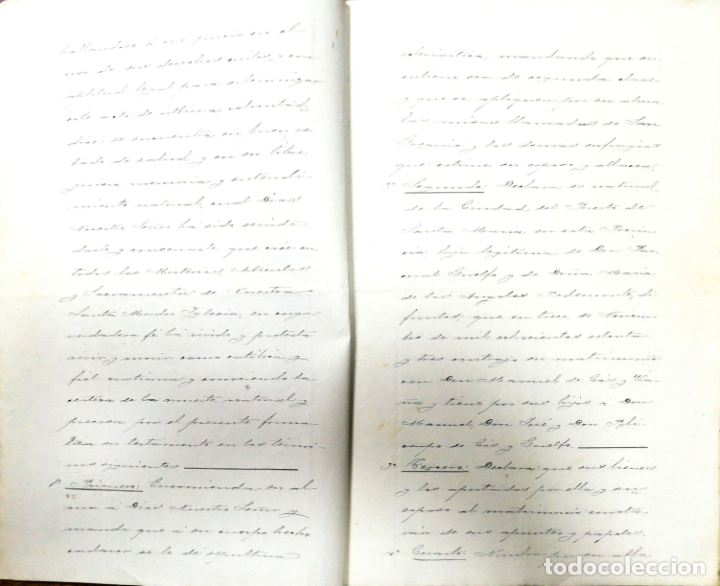 hallandose á mi juicio en el
no de sus derechos civiles, y con
aptitud legal para solemnizar
este acto de ultima voluntad,
dice: se encuentra en buen es
tado de salud, y en su libre
memoria y entendi
miento natural, cual Dios
Nuestro Señor ha sido servido
darle y conservarle, que cree en
todos los Misterios
y Sacramentos de Nuestra
Santa Madre Iglesia, en cuya
verdadera fé ha vivido y protesta
vivir y morir como católica y
fiel cristiana y conociendo la
certeza de la muerte natural y
por el presente forma
liza su testamento en los térmi
nos siguientes
1º Primero: Encomienda su al
ma á Dios Nuestro Señor y
manda que á su cuerpo hecho
cadaver se le dé sepultura
eclesiastica, mandando que su
entierro sea de segunda clase
y que se apliquen por su alma
las misas llamadas de San
Gregorio y los demas sufragios
que estime su esposo y albacea.
2º Segundo: Declara es natural
de la Ciudad del Puerto de
Santa Maria en esta Provin
cia hija legitima de Don Pas
cual Guelfo y de Doña Maria
de los Angeles di
funtos; que en trece de Noviem
bre de mil ochocientos setenta
y tres contrajo su matrimonio
con Don Manuel de Cós y
y tiene por sus hijos á Don
Manuel, Don José y Don Poli
carpo de Cós y Guelfo.
3º Tercero: Declara que sus bienes
y los aportados por ella y su
esposo al matrimonio consta
rán de sus apuntes y papeles.
4º Cuarto: Nombra por su alba
todocoleccion.net